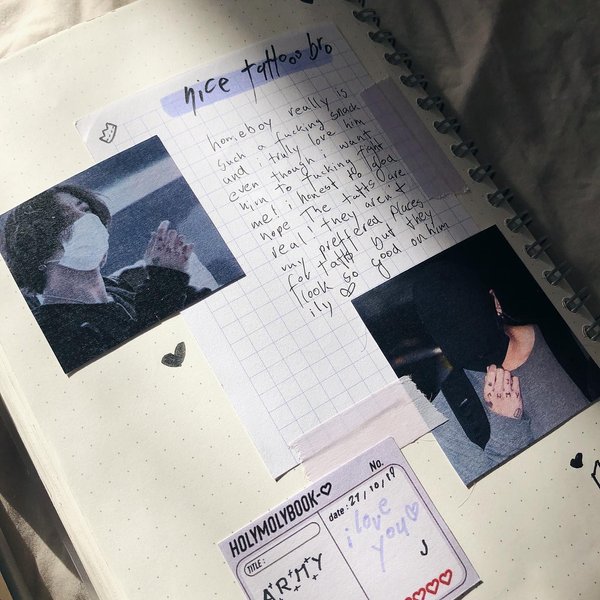 nice tattooo bro
homeboy really is
such a fucking snack
and i truly love him
even though i want
him to fucking fight
me! i honest to god
hope the tatts are
real, they aren't
my preffered places
for tatts but they
look so good on him
ily
HOLYMOLYBOOK
No.
TITLE:
ARMY
date: 29/10/19
i love
you
J